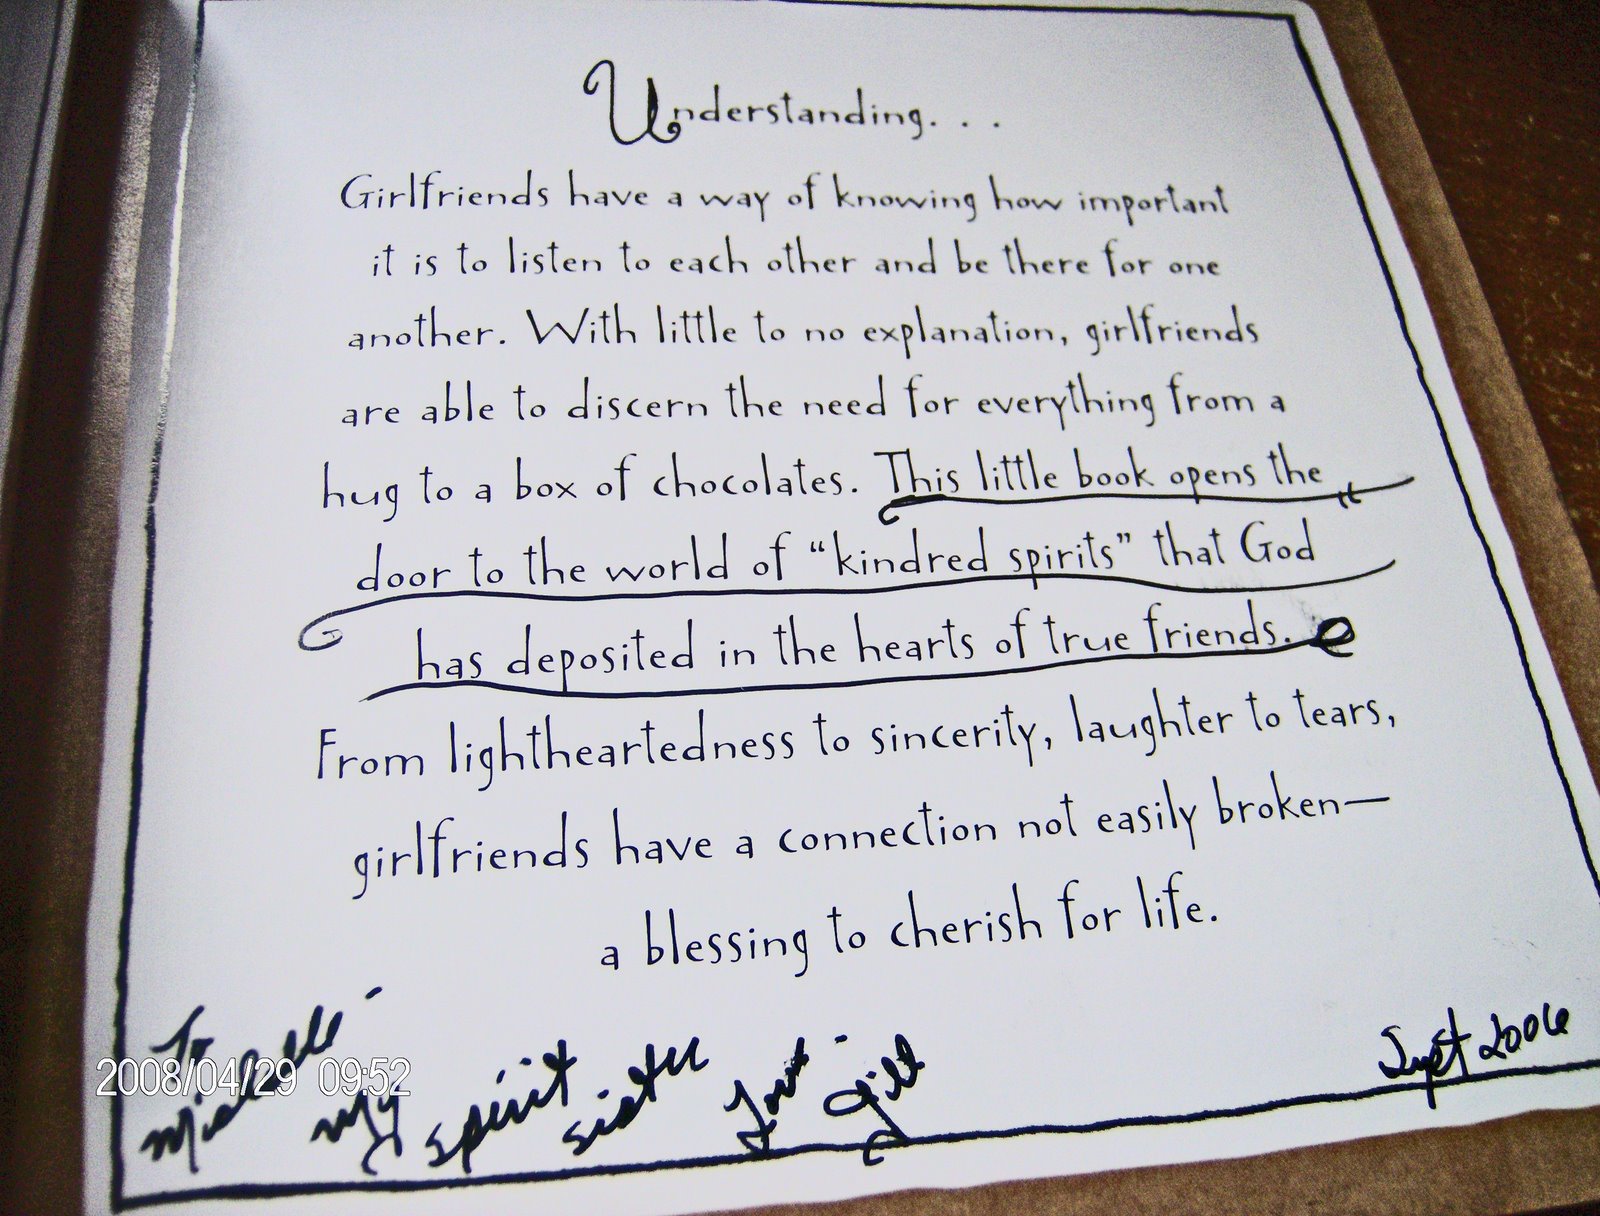 Understanding. . .
Girlfriends have a way of knowing how important
it is to listen to each other and be there for one
another. With little to no explanation, girlfriends
are able to discern the need for everything from a
hug to a box of chocolates. This little book opens the
door to the world of “kindred spirits” that God
has deposited in the hearts of true friends.
From lightheartedness to sincerity, laughter to tears,
girlfriends have a connection not easily broken—
a blessing to cherish for life.
To
Michelle -
my spirit sister Love - Gill
Sept 2006
2008/04/29 09:52